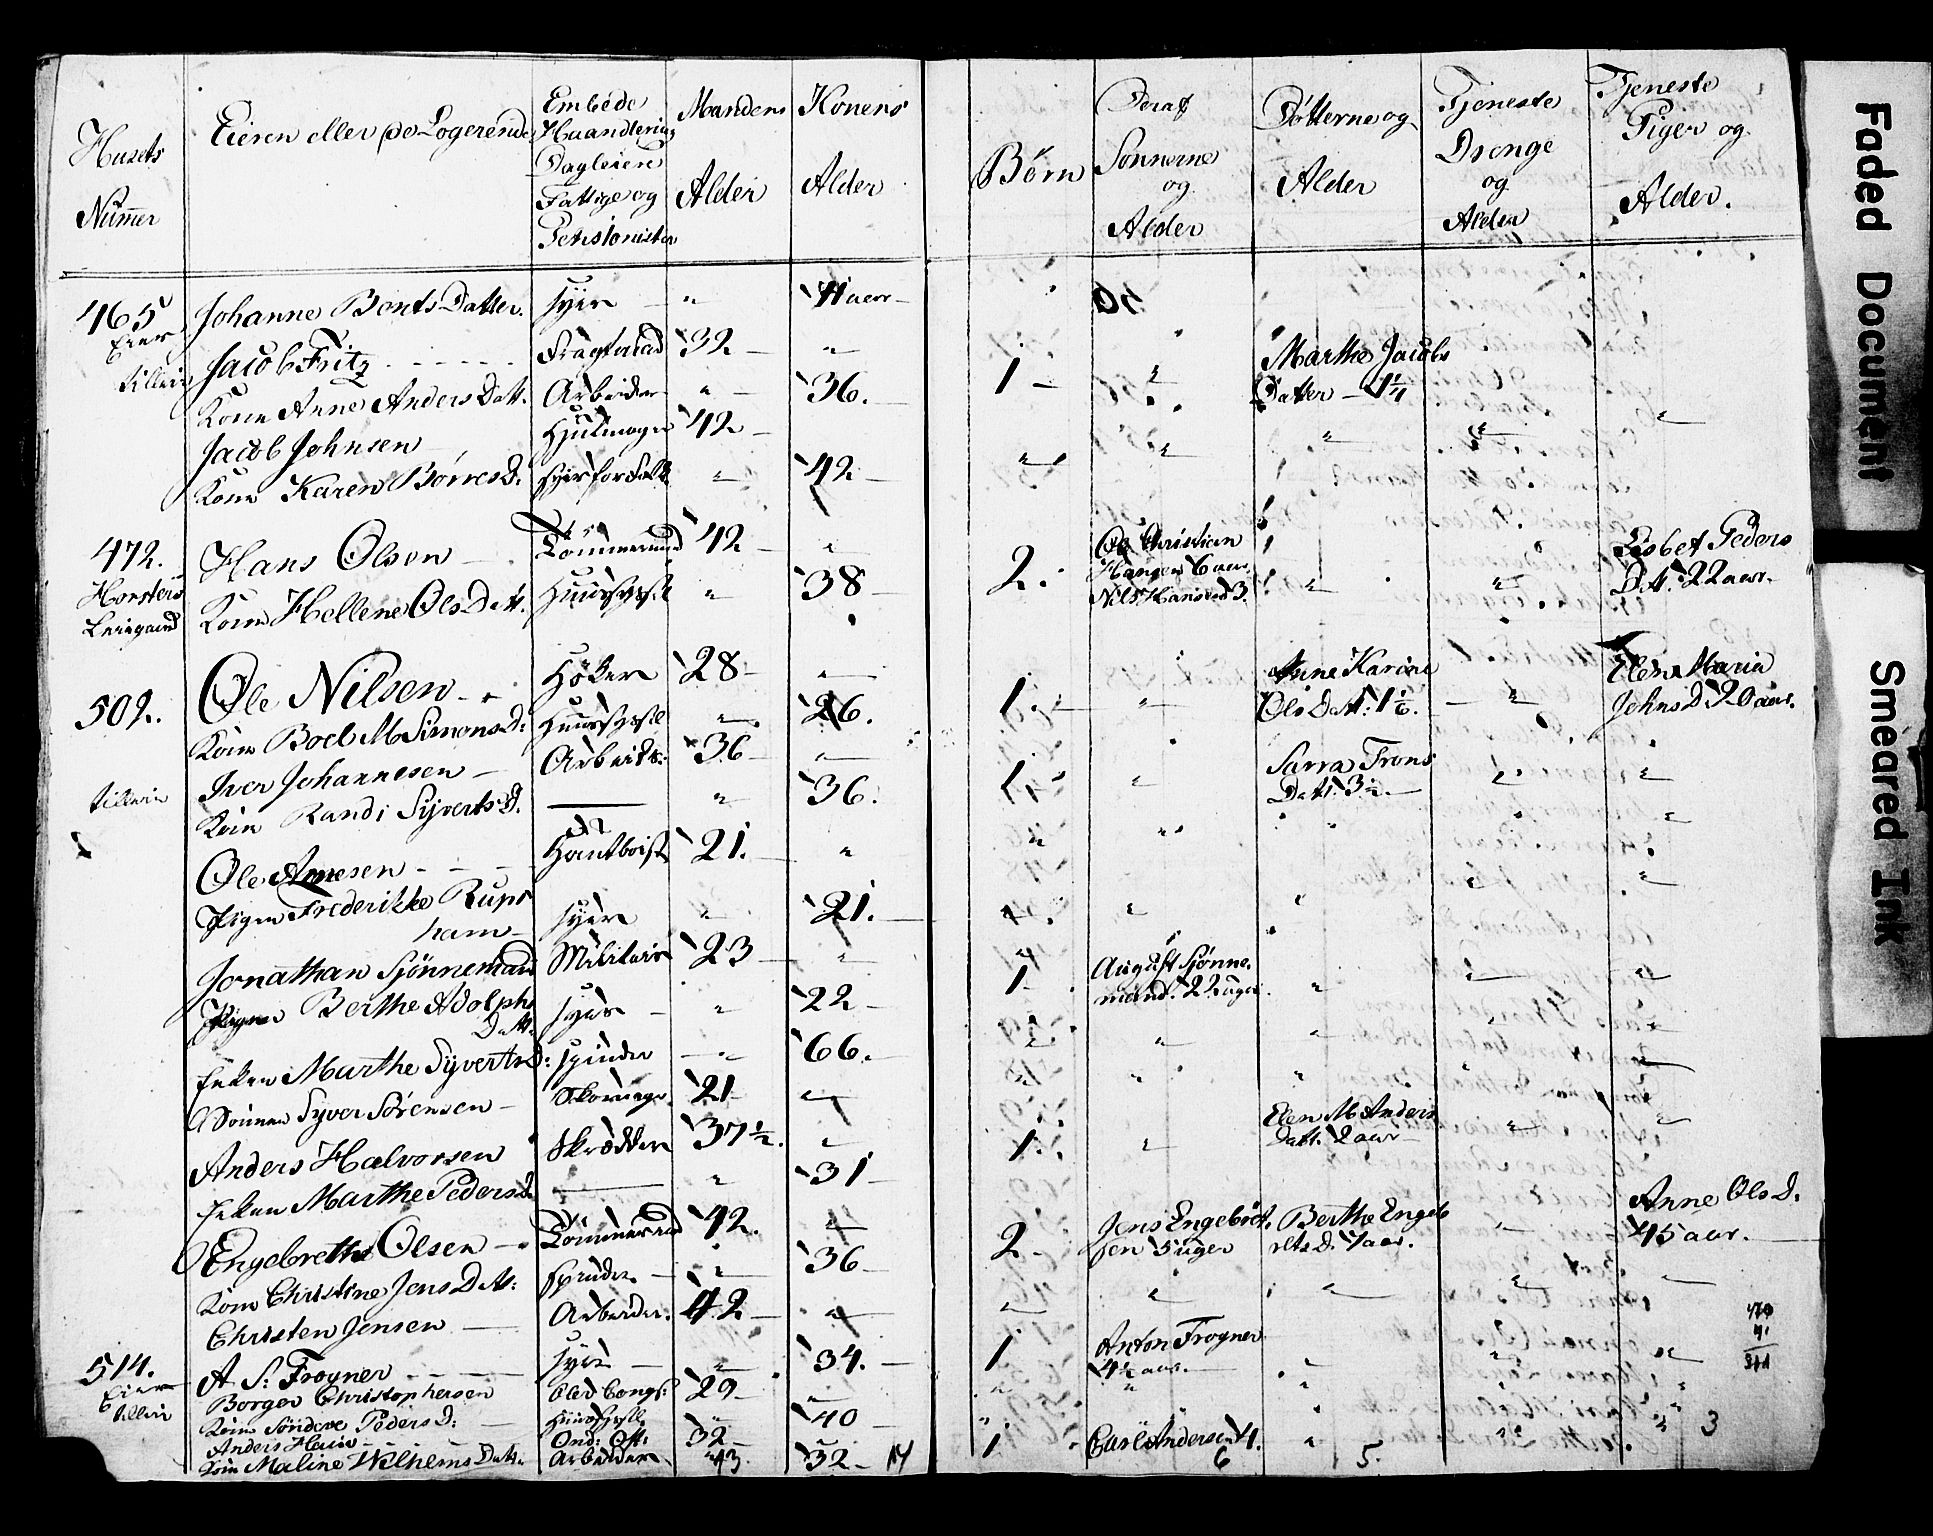 Husets Nummer | Eieren eller de Logerende | Embede Haandtering Dagleiere Fattige og Pensionister | Mandens Alder | Konens Alder | Børn | Deraf Sønnerne og Alder | Døtterne og Alder | Tjeneste Drenge og Alder | Tjeneste Piger og Alder.
465 Eier | Johanne Bents Datter. | syer | " | 41 aar
tilleie | Jacob Fritz | Fragtmand | 32 | " | 1 | " | Marthe Jacobs Datter 1 1/4
Kone Anne Anders Datt. | Arbeider | " | 36.
Jacob Johnsen | Hjulmager | 42 | " | " | " | " | "
Kone Karen Børres D. | syer for Folk | " | 42
472. Leiegaard | Hans Olsen | Tømmermand | 42 | " | 2. | Ole Christian Hansen 6 aar. Nils Hansen 3. | " | " | Lisbet Peders Dt. 22 aar.
Kone Hellene Ols Datt. | Huussyssel | " | 38
502. | Ole Nilsen | Høker | 28 | " | 1. | " | Anne Karine Ols Datt: 1 1/6. | " | Elen Maria Johns D 20 aar.
Kone Boel M Simons D: | Huussyssel | " | 26.
tilleie | Iver Johannesen | Arbeider | 36 | " | 1 | " | Sarra Frons Datt. 3 1/2. | " | "
Kone Randi Syverts D. | — | " | 36.
Ole Arnesen | Hautboist | 21. | "
Pigen Frederikke Rups
ham | syer | " | 21.
Jonathan Sjønnemand | Militair | 23 | " | 1. | August Sjønnemand. 22 uger | " | " | "
Pigen Berthe Adolphs Datt. | syer | " | 22
Enken Marthe Syverts D: | spinder | " | 66.
Sønnen Syver Sørensen | Skomager | 21 | "
Anders Halvorsen | Skrædder | 37 1/2. | " | 1. | " | Elen M Anders Datt. 2 aar | " | "
Enken Marthe Peders D. | — | " | 31
Engebreth Olsen | Tømmermand | 42. | " | 2 | Jens Engebret sen 5 uger | Berthe Engeb rets D. 4 aar. | " | Anne Ols D. 45 aar.
Kone Christine Jens Datt: | spinder | " | 36
Christen Jensen | Arbeider. | 42 | "
514. Eier | A. S: Frogner | syer | " | 34. | 1 | Anton Frogner 4 1/2 aar. | " | " | "
tilleie | Borger Christophersen | 29 | "
Kone Søndeve Peders D: | Huussyssel | " | 40
Anders | 32 | " | 1 | Carl Andersen 4. | " | " | "
Kone Maline Wilhelms Datt. | Arbeider | " | 32
13. | 14 | 6 | 5. | 3
Faded Document
Smeared Ink